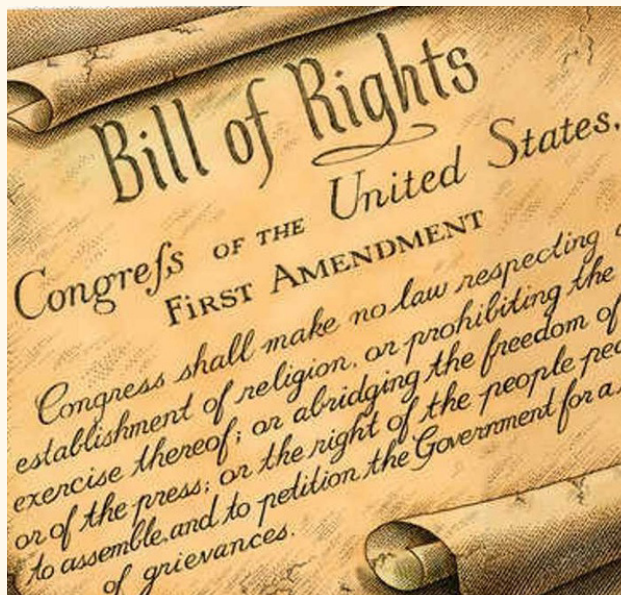 Bill of Rights
Congreſs OF THE United States.
FIRST AMENDMENT
Congress shall make no law respecting
establishment of religion, or prohibiting the
exercise thereof; or abridging the freedom of
or of the press; or the right of the people
to assemble, and to petition the Government for a
of grievances.